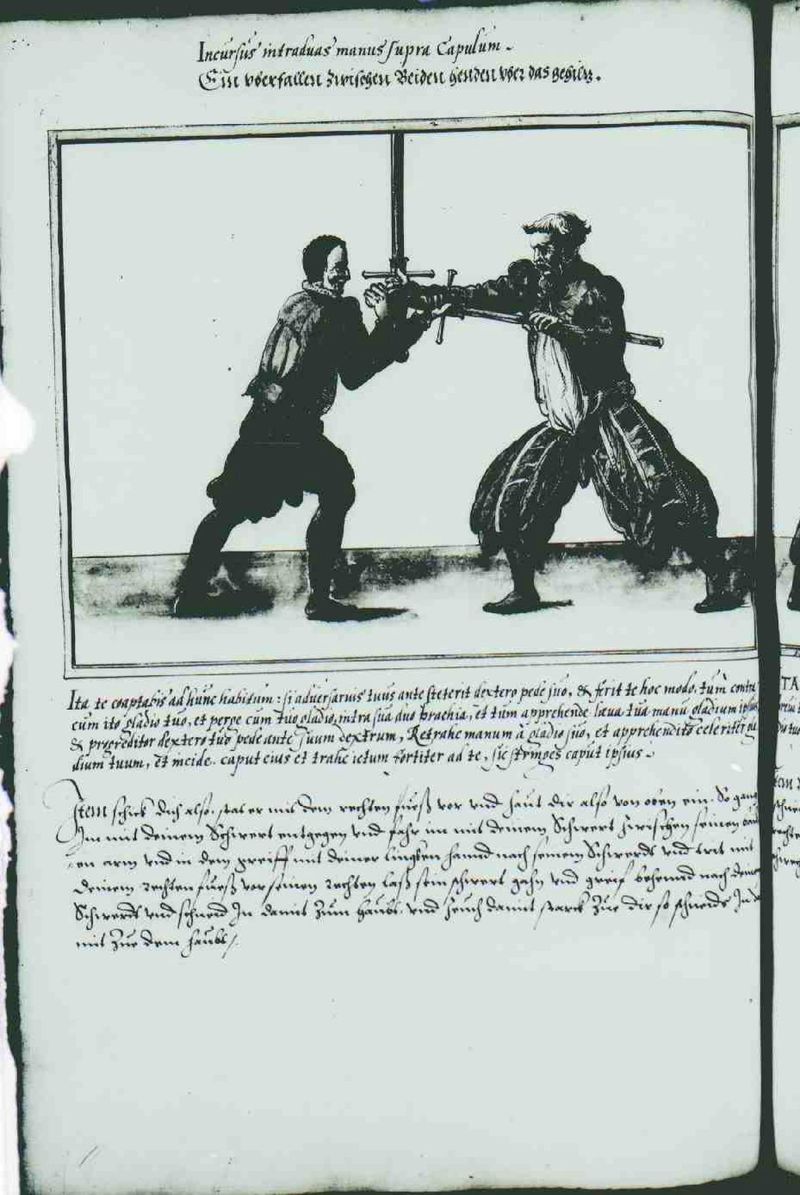 Incursus intraduas manus supra Capulum.
Ein vberfallen zwischen Beiden henden vber das gehilz.
Ita te coaptabis ad hunc habitum: si adversarius tuus ante steterit dextero pede suo, & ferit te hoc modo, tum contra
cum ito gladio tuo, et perge cum tuo gladio, intra sua duo brachia, et tum apprehende laeva tua manu gladium ipsius
& progreditor dextero tuo pede ante suum dextrum, Retrahe manum à gladio suo, et apprehendito celeriter
dium tuum, et incide caput eius et trahe ictum fortiter ad te, sic stringes caput ipsius.
Item schick dich also, stat er mit dem rechten fuess vor vnd haut dir also von oben ein. So gang
Im mit deinem Schwert entgegen vnd fahr im mit deinem Schwert zwischen seinen
en arm vnd in dem greiff mit deiner linghen hannd nach seinem Schwerdt vnd trit mit
deinem rechten fuess vor seinen rechten lass sein schwert gehn vnd greif behennd nach deinem
Schwerdt vnd schneid In damit zum haubt. vnd zeuch damit starck zue dir so schneidt In
mit zue dem haubt
TA